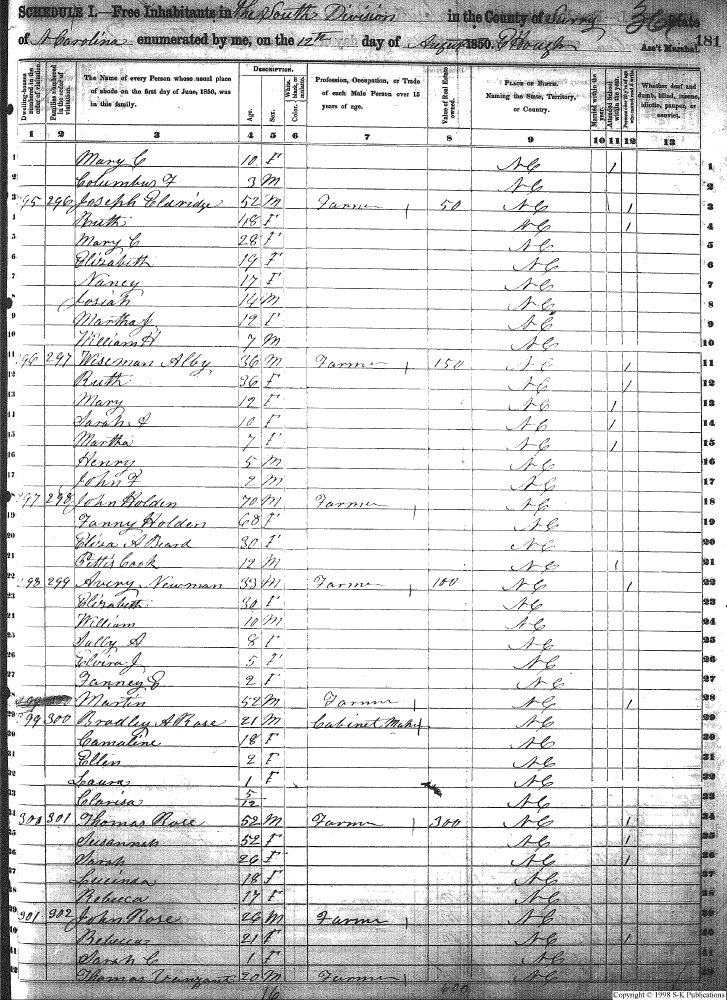 SCHEDULE I.—Free Inhabitants in The South Division in the County of Surry State
of N Carolina enumerated by me, on the 12th day of August 1850. Ass't Marshal. 181
Dwelling-houses numbered in the order of visitation.
Families numbered in the order of visitation.
The Name of every Person whose usual place of abode on the first day of June, 1850, was in this family.
DESCRIPTION.
Age.
Sex.
Color.
Profession, Occupation, or Trade of each Male Person over 15 years of age.
Value of Real Estate owned.
PLACE OF BIRTH. Naming the State, Territory, or Country.
Married within the year.
Attended School within the year.
Whether deaf and dumb, blind, insane, idiotic, pauper, or convict.
1 2 3 4 5 6 7 8 9 10 11 12 13
1 Mary C 10 F NC 1 1
2 Columbus F 3 M NC 2
3 295 296 Joseph Eldridge 52 M Farmer 50 NC 1 3
4 Ruth 48 F NC 1 4
5 Mary C 28 F NC 5
6 Elizabeth 19 F NC 6
7 Nancy 17 F NC 7
8 Josiah 14 M NC 8
9 Martha J 12 F NC 9
10 William H 7 M NC 10
11 296 297 Wiseman Alby 36 M Farmer 150 NC 1 11
12 Ruth 36 F NC 1 12
13 Mary 12 F NC 1 13
14 Sarah A 10 F NC 1 14
15 Martha 7 F NC 1 15
16 Henry 5 M NC 16
17 John F 2 M NC 17
18 297 298 John Holden 70 M Farmer NC 18
19 Fanny Holden 68 F NC 19
20 Eliza A Beard 30 F NC 20
21 Pettis Cook 12 M NC 1 21
22 298 299 Avery Newman 33 M Farmer 100 NC 1 22
23 Elizabeth 30 F NC 23
24 William 10 M NC 24
25 Sally A 8 F NC 25
26 Elvira J 5 F NC 26
27 Fanney E 2 F NC 27
28 Martin 52 M Farmer NC 1 28
29 299 300 Bradley A Rose 21 M Cabinet Maker NC 29
30 Camaline 18 F NC 30
31 Ellen 2 F NC 31
32 Laura 1 F NC 32
33 Clarisa 5/12 NC 33
34 300 301 Thomas Rose 52 M Farmer 300 NC 1 34
35 Susannah 52 F NC 1 35
36 Sarah 26 F NC 1 36
37 Lucinda 18 F NC 37
38 Rebecca 17 F NC 38
39 301 302 John Rose 26 M Farmer NC 39
40 Rebecca 21 F NC 1 40
41 Sarah C 1 F NC 41
42 Thomas Vanzant 20 M Farmer NC 42
16 600
Copyright © 1998 S-K Publications